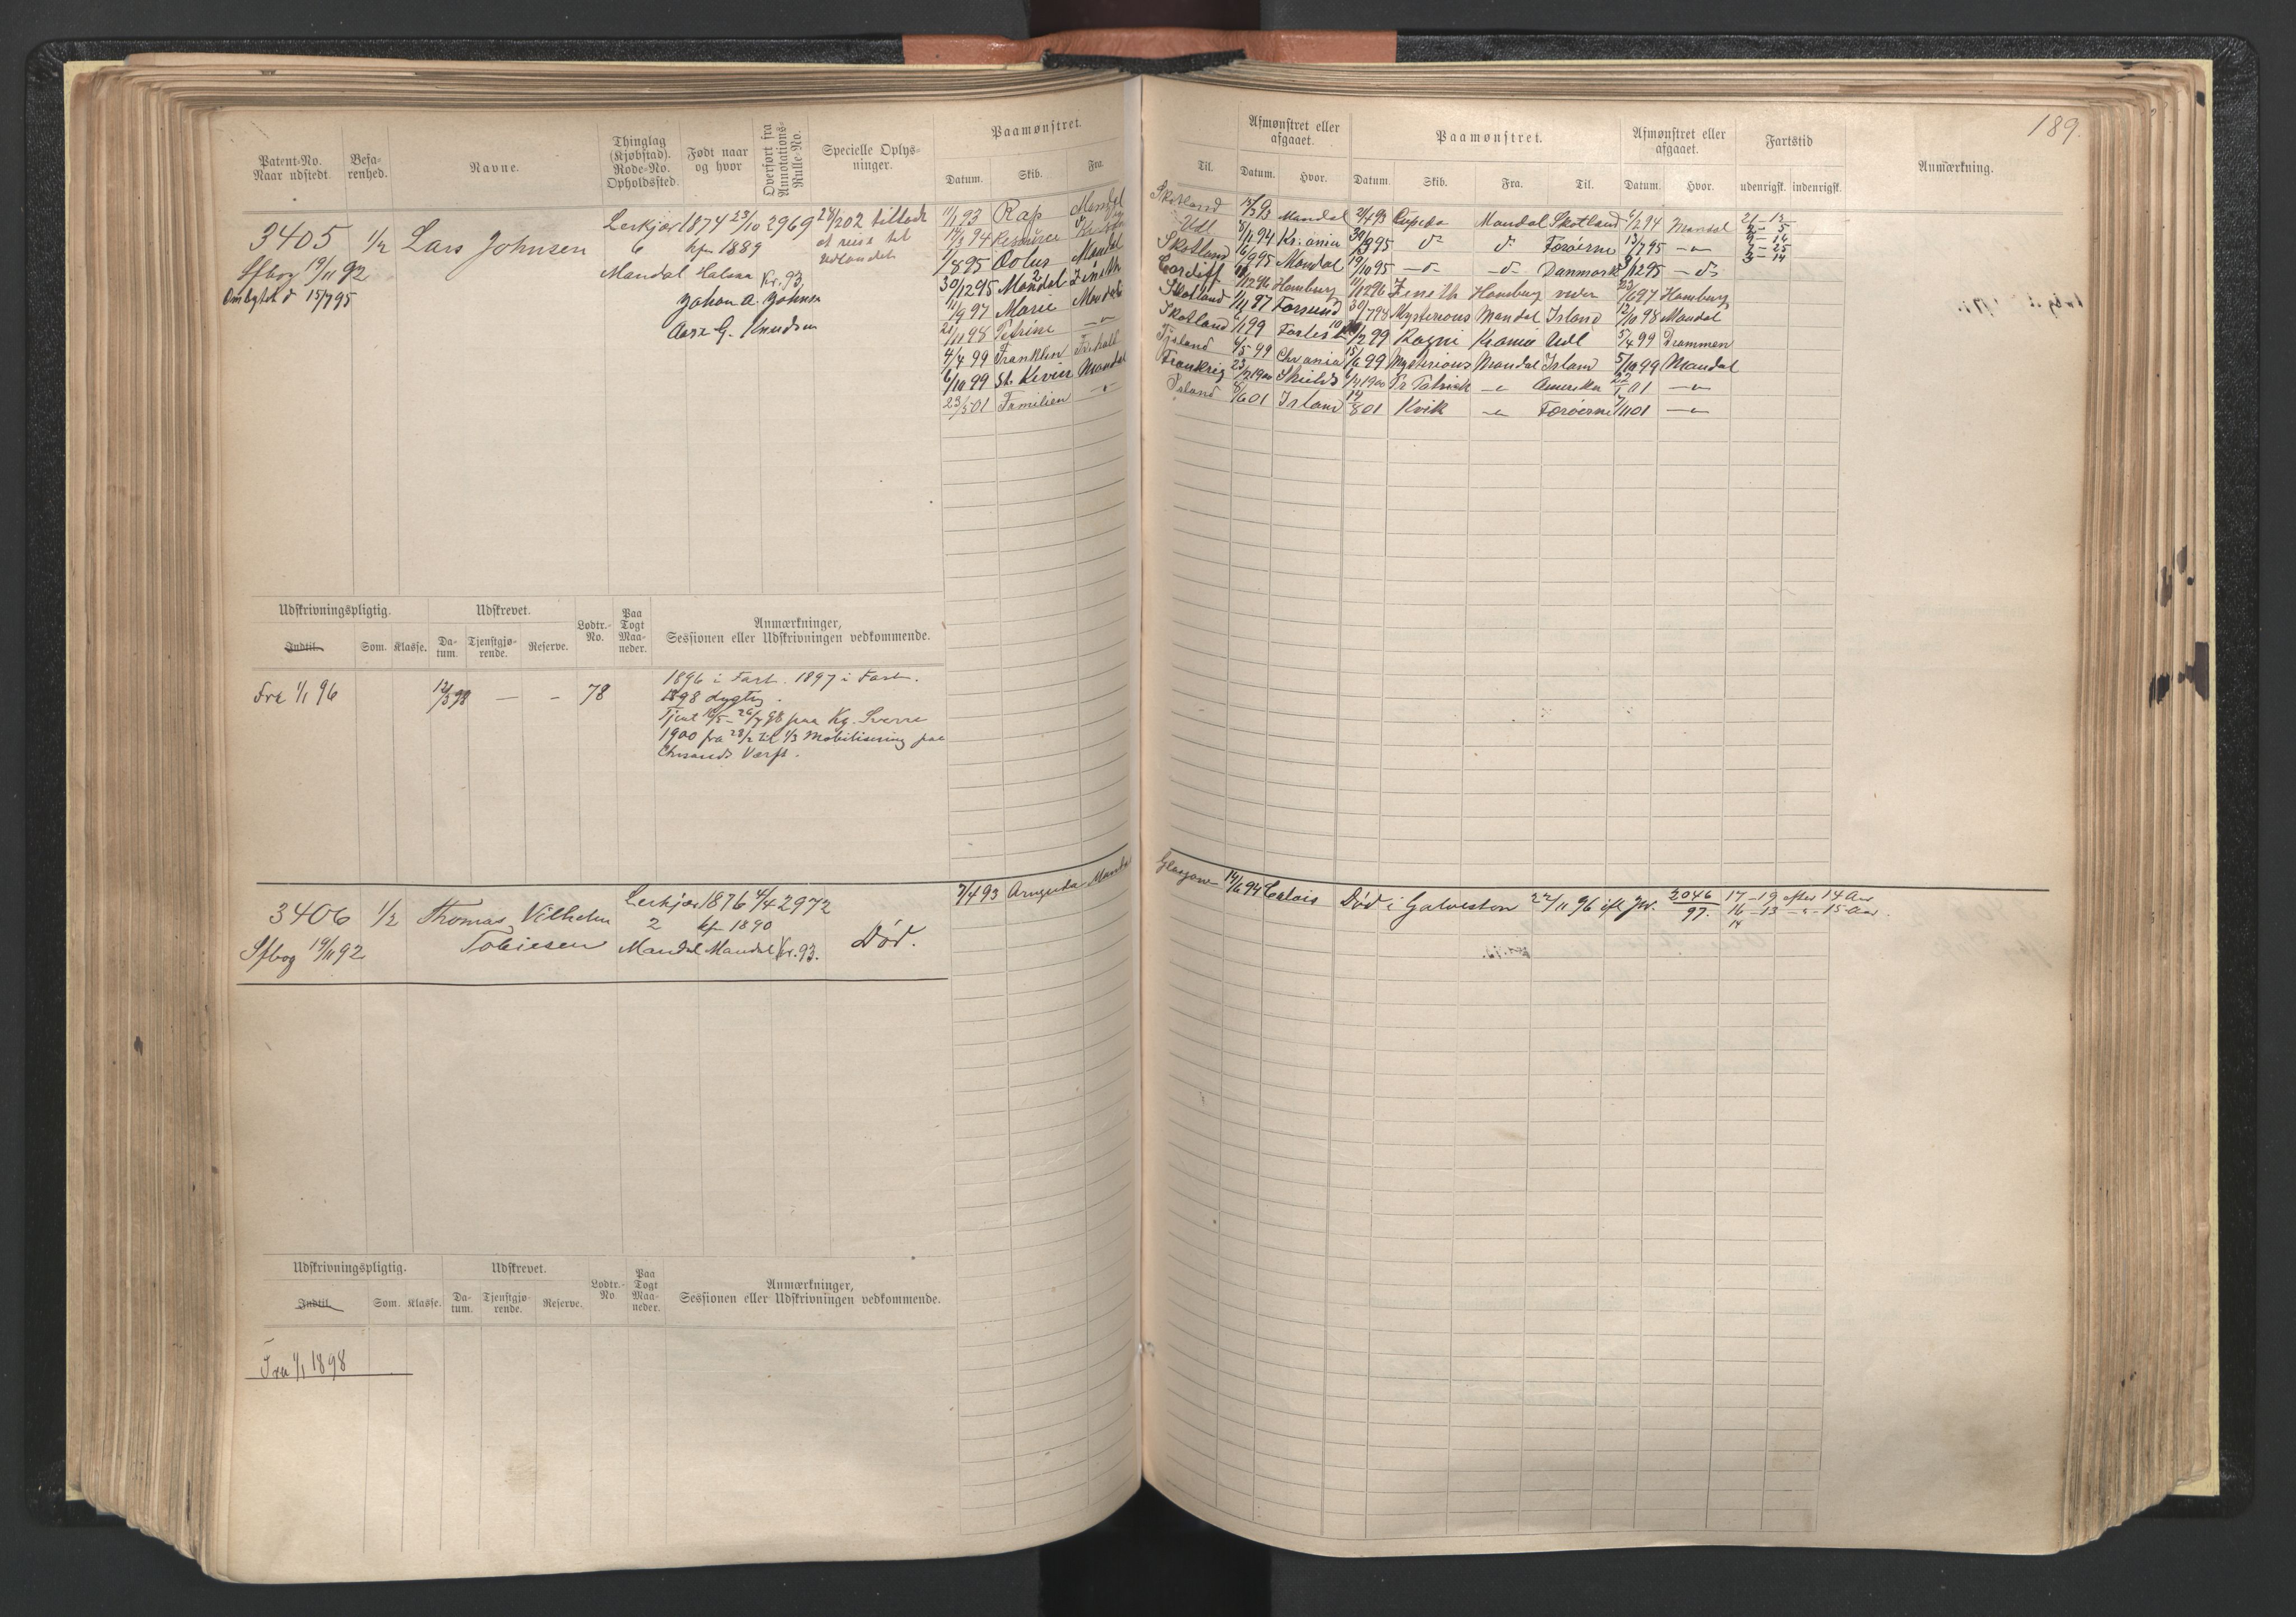 189.
Patent-No. Naar udstedt.
Befarenhed.
Navne.
Thinglag (Kjøbstad). Rode-No. Opholdssted.
Født naar og hvor
Overført fra Annotations-Rulle-No.
Specielle Oplysninger.
Paamønstret.
Datum. Skib. Fra. Til.
Afmønstret eller afgaaet.
Datum. Hvor.
Paamønstret.
Datum Skib. Fra. Til.
Afmønstret eller afgaaet.
Datum. Hvor.
Fartstid
udenrigsk. indenrigsk.
Anmærkning.
3405 1/2 Lars Johnsen
Sfbog 19/11 92
Ombyttet d 15/7 95
Lerkjær 1874 23/10 2969
6 kfr 1889
Mandal Halsaa Kr. 93
Johan A. Johnsen
Aase G. Knudsen
24/2 02 tilladt
at reise til
Udlandet
11/1 93 Rap Mandal Skotland 13/3 93 Mandal 2/4 93 Cupido Mandal Skotland 6/2 94 Mandal
94 Resource Udl 8/1 94 Kr.ania 30/3 95 do do Færøerne 13/7 95 — " —
1/8 95 Æolus Mandal Skotland 6/9 95 Mandal 19/10 95 — do — — do — Danmark 95 — do
30/12 95 Zenith Cardiff 11/12 96 Hamburg 11/12 96 Zenith Hamburg 23/6 97 Hamburg
11/9 97 Marie Mandal Skotland 1/11 97 Farsund 30/7 98 Mysterious Mandal Island 12/10 98 Mandal
21/11 98 Petrine — " — Skotland 6/1 99 /2 99 Ragni Krania Udl 5/4 99 Drammen
4/4 99 Franklin Frhald Tjsland 6/5 99 Chrania 15/6 99 Mysterious Mandal Island 5/10 99 Mandal
6/10 99 St. Mandal Frankrig 23/2 1900 Shields 1900 Patrick — " — Amerika 01 — " —
23/5 01 Familien — " — Island 8/6 01 Island 14/8 01 Kvik — " — Færøerne 01 — " —
21 — 13
2 — 5
9 — 14
7 — 25
3 — 14
Udskrivningspligtig. Udskrevet.
Indtil. Som. Klasse. Datum. Tjenstgjørende. Reserve. Lodtr.-No. Paa Togt Maaneder.
Anmærkninger, Sessionen eller Udskrivningen vedkommende.
Fra 1/1 96 12/3 98 — – 78
1896 i Fart. 1897 i Fart.
1898 dygtig.
Tjent – 26/7 98 paa Kg. Sverre
1900 fra 28/2 til 1/3 Mobilisering paa
Chrsands Værft.
3406 1/2 Thomas Vilhelm
Tobiesen
Sfbog 19/11 92
Lerkjær 1876 4/4 2972
2 kfr 1890
Mandal Mandal Kr. 93.
Død.
7/4 93 Mandal Glasgow 14/6 94 Calais Død i Galveston 22/11 96 ifl Jvr. 2046/97. 17 — 19 efter 14 Aar
16 — 13 — " — 15 Aar.
14
Udskrivningspligtig. Udskrevet.
Indtil. Som. Klasse. Datum. Tjenstgjørende. Reserve. Lodtr.-No. Paa Togt Maaneder.
Anmærkninger, Sessionen eller Udskrivningen vedkommende.
Fra 1/1 1898